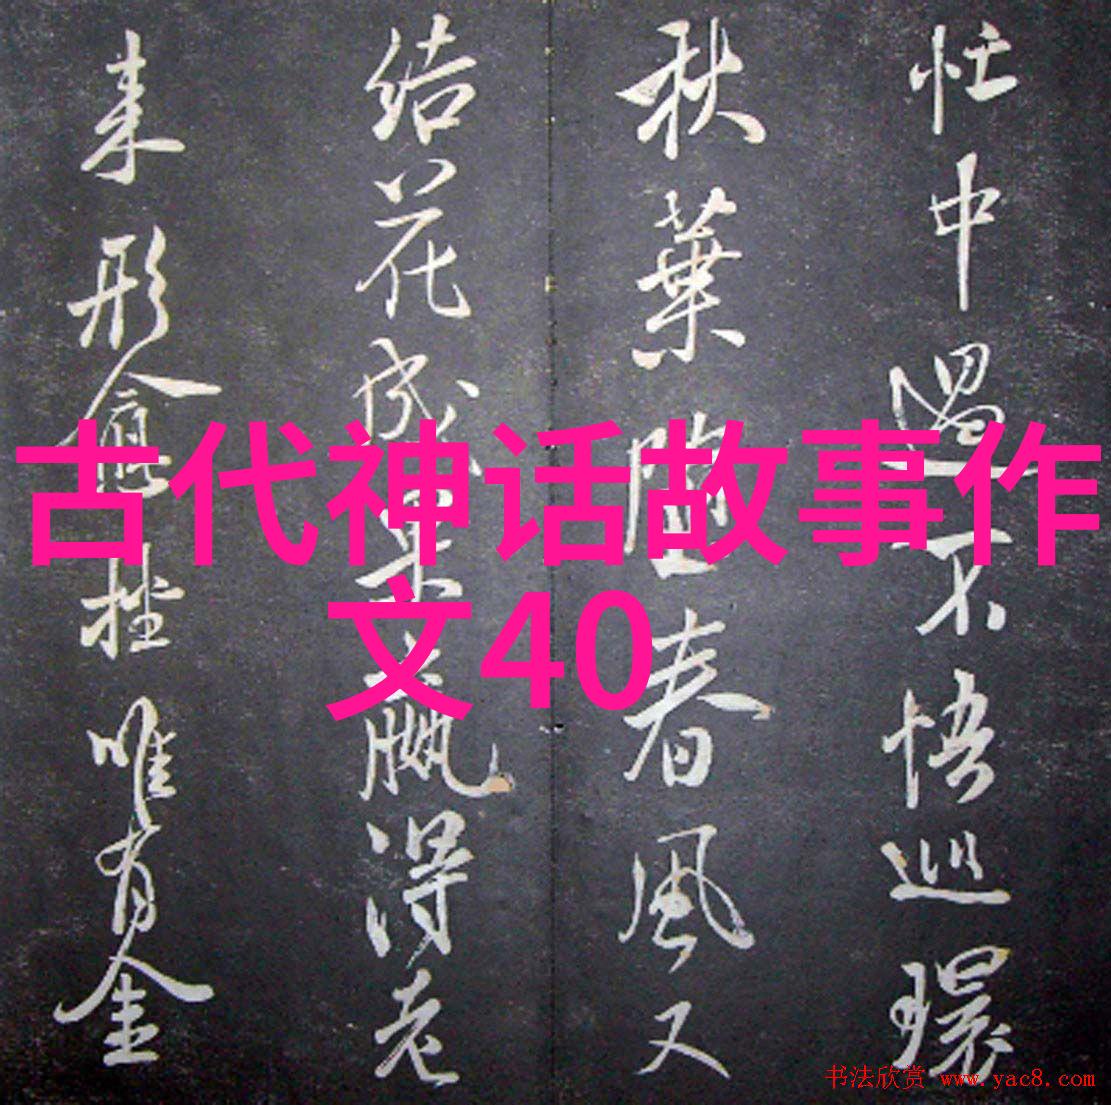 忙中不悟巡環
秋葉春風又
結花成果嬴得老
来形愈唯有金
古代神话故事作
文40
书法欣赏 www.yac8.com